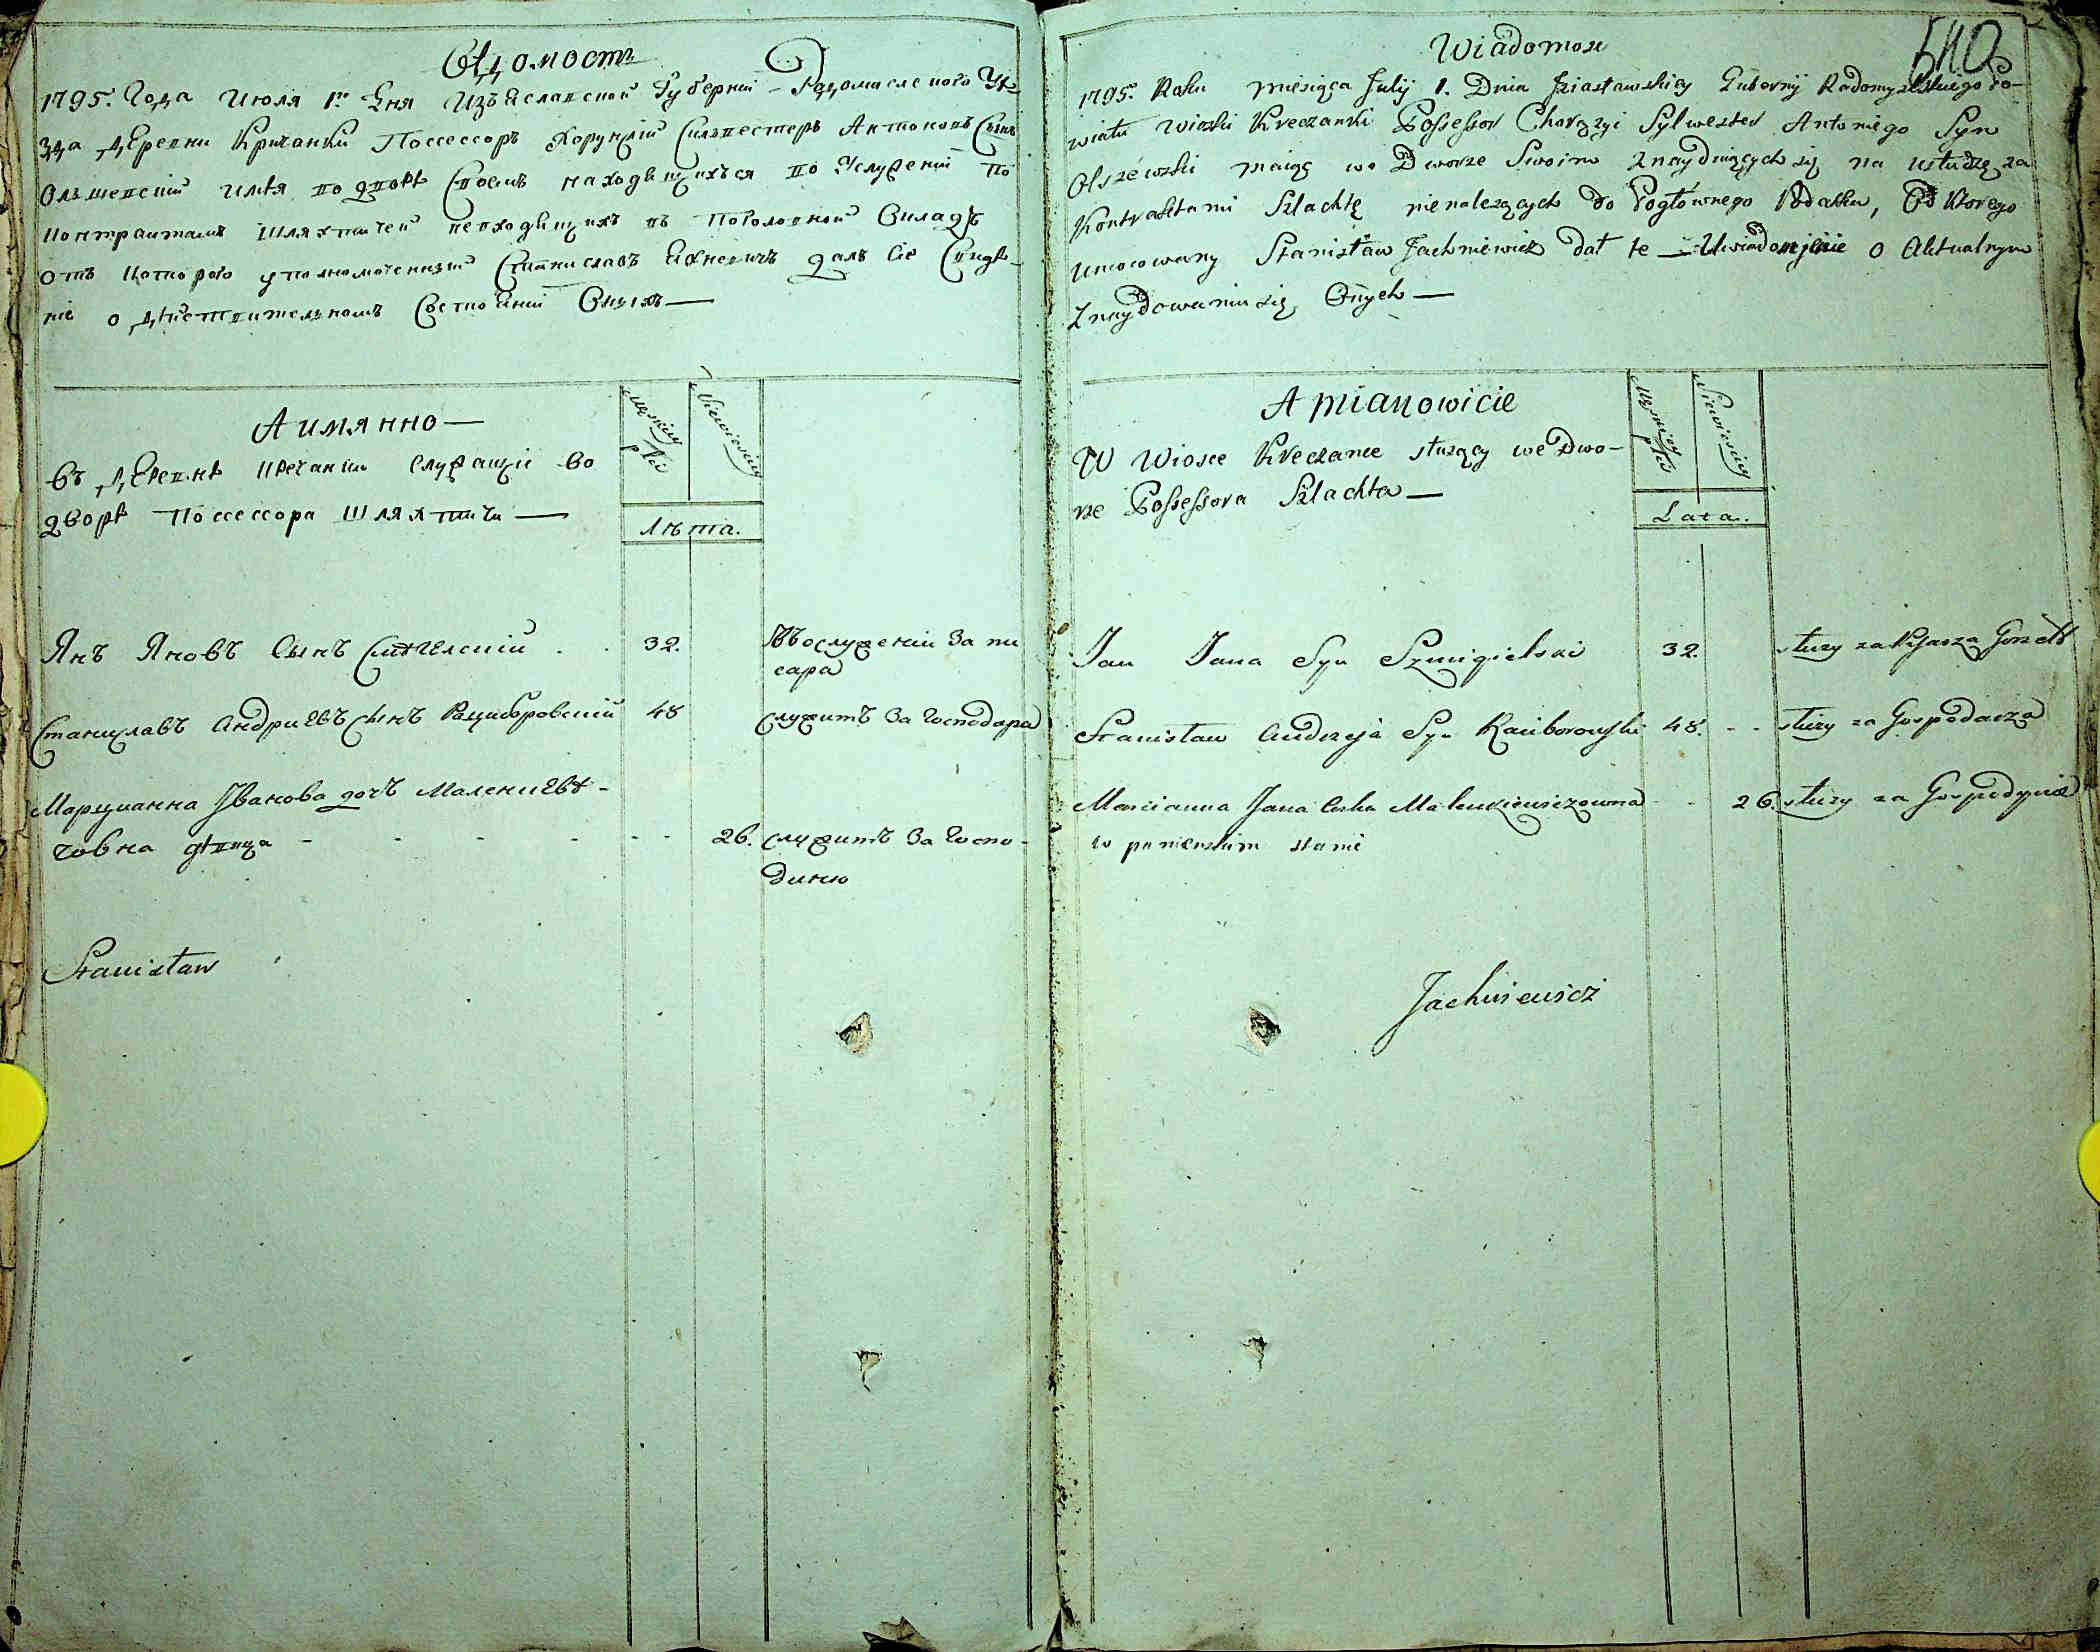 Вѣдомость
1795. Года Июля 1го Дня Изъяславской Губерніи Радомислского Уѣ-
зда Деревни Кричанки Поссессоръ Хорунжій Сильвестеръ Антоновъ Сынъ
Ольшевскій имѣя во дворѣ своемъ находящихся во Услуженіи по
контрактамъ шляхтичей невходящихъ въ поголовной Окладъ
отъ которого уполномоченный Станиславъ Яхневичъ далъ сіе Свидѣ-
ніе о действительномъ Состояніи Оныхъ
А имянно
въ Деревнѣ Кречанки служащіе во
дворѣ Поссессора Шляхтичи
męskiey płci
Niewieściey
Лѣта.
Янъ Яновъ Сынъ Смѣгелскій . . 32. въ служеніи за пи
сара
Станиславъ Андриевъ сынъ Рациборовскій 48 служитъ за господара
Марцианна Іванова дочъ Маленкиевѣ-
човна дѣвица - - - - - - 26. служитъ за госпо-
диню
Stanisław
Wiadomość
540
1795. Roku miesiąca Julij 1. Dnia Iziasławskiey Gubernij Radomyslskiego Po-
wiatu Wioski Kreczanki Possessor Chorąży Sylwester Antoniego Syn
Olszewski maiąc we Dworze Swoim znayduiących się na usłudze za
Kontraktami Szlachtę nienależących do Pogłównego Podatku, Od Ktorego
Umocowany Stanisław Jachniewicz dał te Uwiadomienie o Aktualnym
Znaydowaniu się Onych
A mianowicie
W Wiosce Kreczance służący we Dwo-
rze Possessora Szlachta
męskiey płci
Niewieściey
Lata.
Jan Jana Syn Szmigielski 32. służy za Pisarza
Stanisław Andrzeja Syn Raciborowski 48. - - służy za Gospodarza
Marcianna Jana Corka Malenkiewiczowna - - 26. służy za Gospodynią
w panieńskim stanie
Jachniewicz